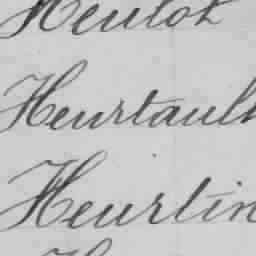 Heulot
Heurtault
Heurtin